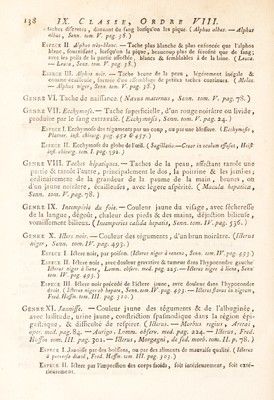 138 IX. CLASSE, ORDRE VIII.
taches différentes, donnant du sang lorsqu'on les pique (Alphus albus. — Alphus
albus, Senn. tom. V. pag. 38.)
ESPECE II. Alphos très-blanc. — Tache plus blanche & plus enfoncée que l'alphos
blanc, fournissant, lorsqu'on la pique, beaucoup plus de sérosité que de sang;
avec les poils de la partie affectée, blancs & semblables à de la laine. (Leuce.
— Leuce, Senn. tom. V. pag. 38.)
ESPECE III. Alphos noir. — Tache brune de la peau, légérement inégale &
comme écailleuse, formée d'un assemblage de petites taches continues. (Melas.
— Alphus niger, Senn. tom. V. pag. 38.)
GENRE VI. Tache de naissance (Nævus maternus, Senn. tom. V. pag. 78.)
GENRE VII. Ecchymose. — Tache superficielle, d'un rouge noirâtre ou livide,
produite par le sang extravasé. (Ecchymosis, Senn. tom. V. pag. 24.)
ESPECE I. Ecchymose des tégumens par un coup, ou par une blessure. (Ecchymose,
Planer. inst. chirurg. pag. 452 & 457.)
ESPECE II. Ecchymose du globe de l'œil. (Sugillatio. — Cruor in oculum effusus, Heist.
inst. chirurg. tom. I. pag. 592.)
GENRE VIII. Taches hépatiques. — Taches de la peau, affectant tantôt une
partie & tantôt l'autre, principalement le dos, la poitrine & les jambes;
ordinairement de la grandeur de la paume de la main, brunes, ou
d'un jaune noirâtre, écailleuses, avec légere aspérité. (Macula hepatica;
Senn. tom. V. pag. 78.)
GENRE IX. Intempérie du foie. — Couleur jaune du visage, avec sécheresse
de la langue, dégoût, chaleur des pieds & des mains, déjection bilieuse,
vomissement bilieux. (Intemperies calida hepatis, Senn. tom. IV. pag. 356.)
GENRE X. Ictere noir. — Couleur des tégumens, d'un brun noirâtre. (Icterus
niger, Senn. tom. IV. pag. 493.)
ESPECE I. Ictere noir, par poison. (Icterus niger à veneno, Senn. tom. IV. pag. 493.)
ESPECE II. Ictere noir, avec douleur gravative & tumeur dans l'hypocondre gauche
(Icterus niger à liene, Lomm. observ. med. pag. 225. — Icterus niger à liene, Senn.
tom. IV. pag. 493.)
ESPECE III. Ictere noir précédé de l'ictere jaune, avec douleur dans l'hypocondre
droit. (Icterus niger ab hepate, Senn. tom. IV. pag. 493. — Icterus flavus in nigrum,
Fred. Hoffm. tom. III. pag. 310.)
GENRE XI. Jaunisse. — Couleur jaune des tégumens & de l'albuginée,
avec lassitude, urine jaune, constriction spasmodique dans la région épi-
gastrique, & difficulté de respirer. (Icterus. — Morbus regius, Aretæi,
oper. med. pag. 84. — Aurigo. Lomm. observ. med. pag. 224. — Icterus, Fred.
Hoffm. tom. III. pag. 301. — Icterus, Morgagni, de sed. morb. tom. II. p. 78.)
ESPECE I. Jaunisse par des boissons, ou par des alimens de mauvaise qualité. (Icterus
à perversâ diætâ, Fred. Hoffm. tom. III. pag. 303.)
ESPECE II. Ictere par l'impression des corps froids, soit intérieurement, soit exté-
rieurement.